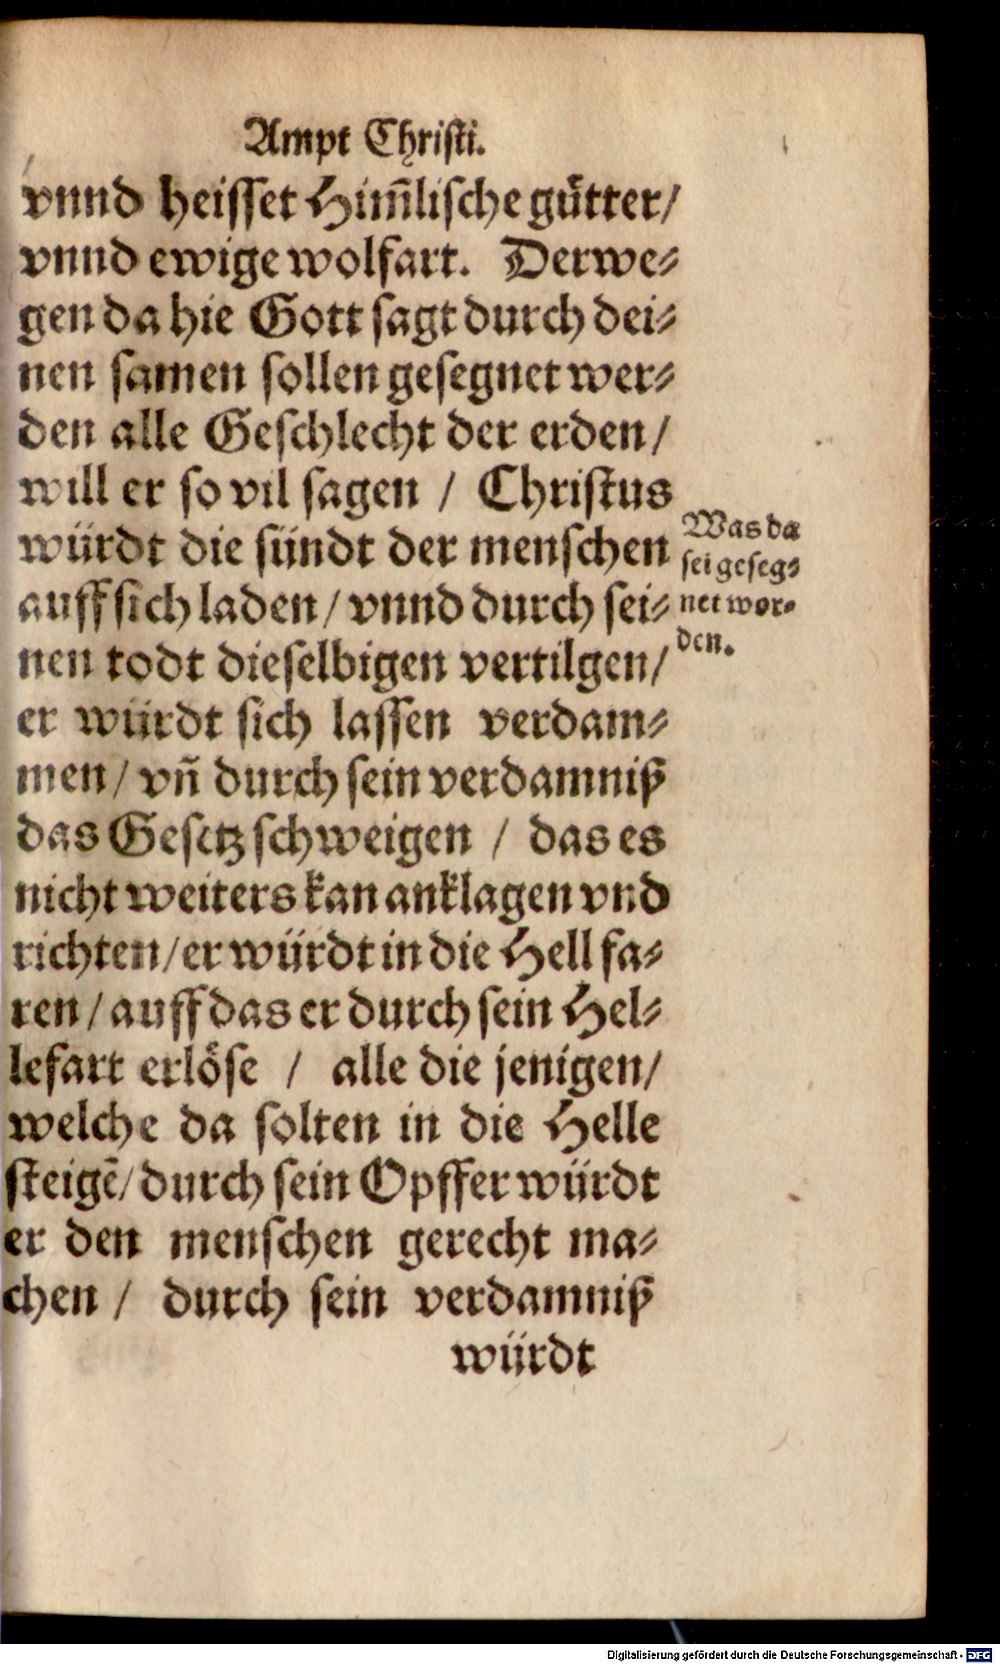 Ampt Christi.
vnnd heisset Him̃lische gůtter/
vnnd ewige wolfart. Derwe⸗
gen da hie Gott sagt durch dei⸗
nen samen sollen gesegnet wer⸗
den alle Geschlecht der erden/
will er so vil sagen / Christus
würdt die sündt der menschen
auff sich laden / vnnd durch sei⸗
nen todt dieselbigen vertilgen/
er würdt sich lassen verdam⸗
men / vñ durch sein verdamniß
das Gesetz schweigen / das es
nicht weiters kan anklagen vnd
richten / er würdt in die Hell fa⸗
ren / auff das er durch sein Hel⸗
lefart erlöse / alle die jenigen/
welche da solten in die Helle
steigẽ / durch sein Opffer würdt
er den menschen gerecht ma⸗
chen / durch sein verdamniß
würdt
Was da
sei geseg⸗
net wor⸗
den.
Digitalisierung gefördert durch die Deutsche Forschungsgemeinschaft - DFG